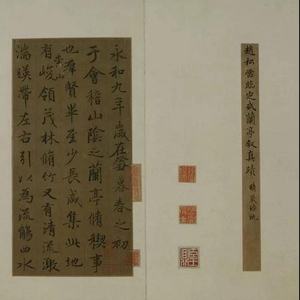 趙松雪臨定武蘭亭叙真蹟
永和九年歲在癸丑暮春之初
于會稽山陰之蘭亭脩禊事
也群賢畢至少長咸集此地
有崇山峻領茂林脩竹又有清流激
湍暎帶左右引以為流觴曲水